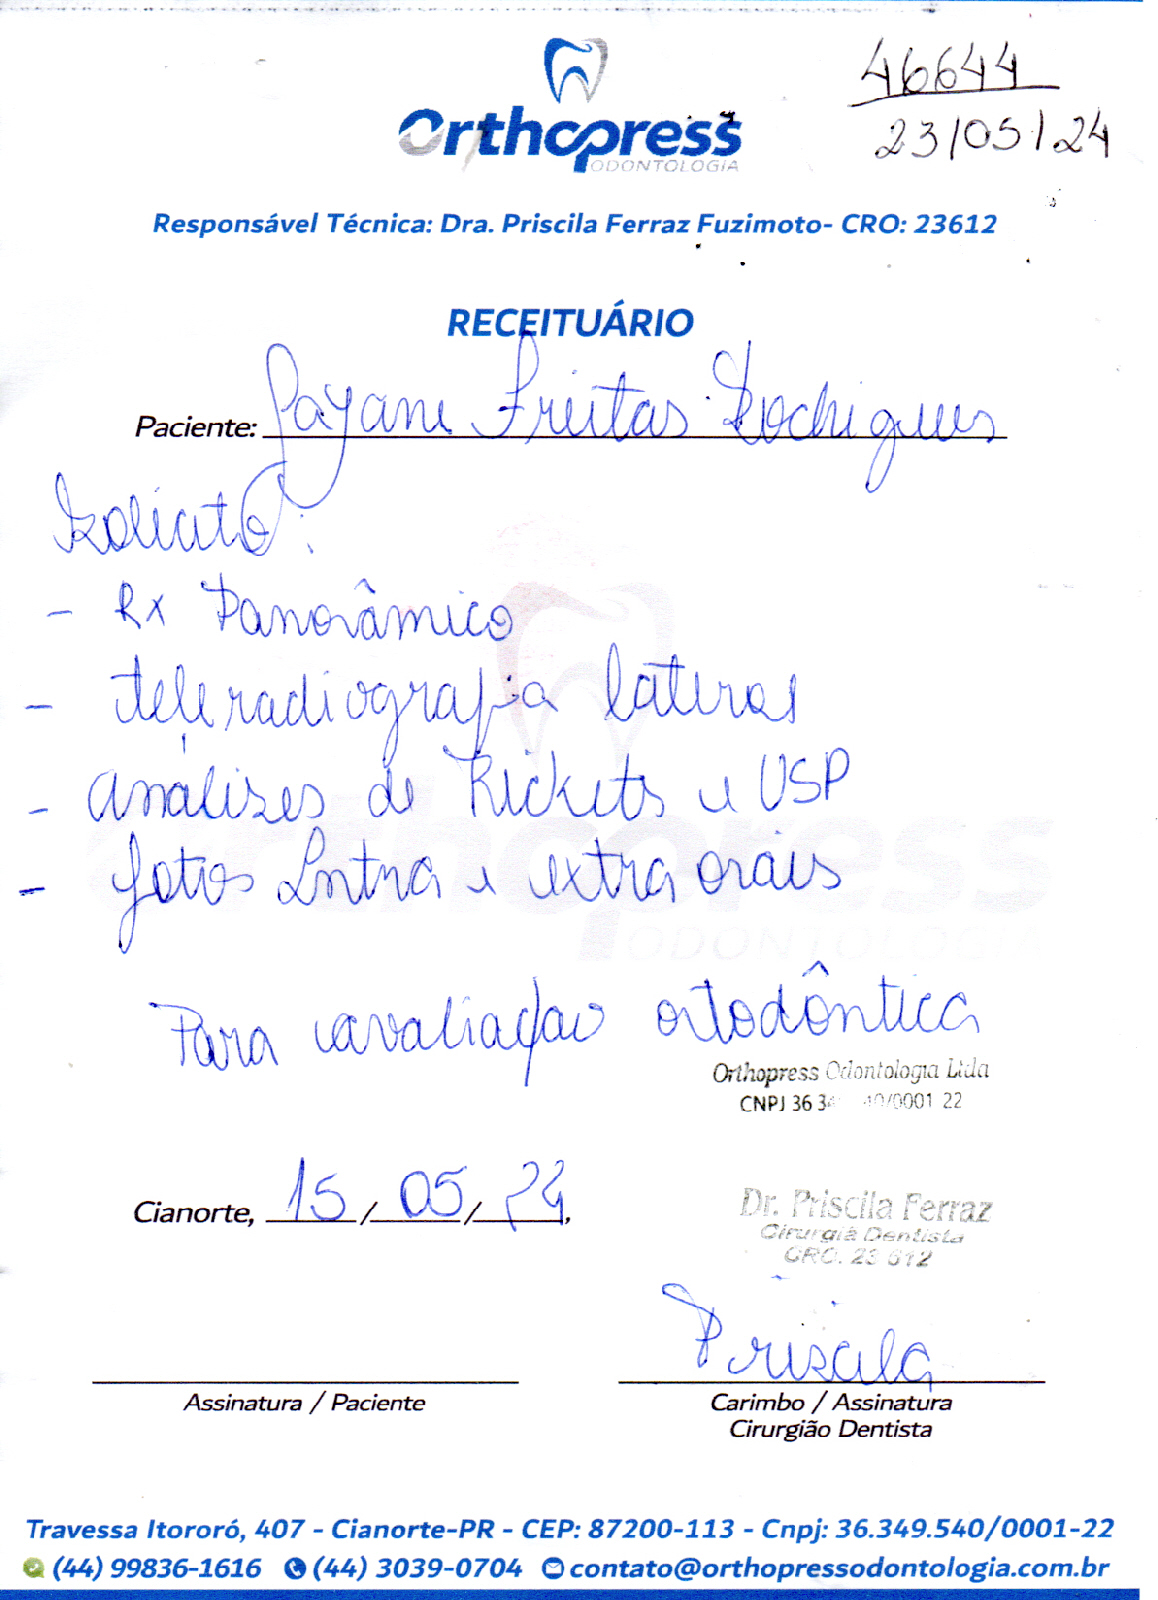 46644
23/05/24
Orthopress
ODONTOLOGIA
Responsável Técnica: Dra. Priscila Ferraz Fuzimoto- CRO: 23612
RECEITUÁRIO
Paciente: Freitas Rodrigues
Solicito:
- Rx Panorâmico
- teleradiografia lateral
- análises de Rickets e USP
- fotos Intra e extra orais
Para avaliação ortodôntica
Orthopress Odontologia Ltda
CNPJ 36 34 40/0001 22
Cianorte, 15/05/24,
Dr. Priscila Ferraz
Cirurgiã Dentista
CRO. 23 612
Priscila
Assinatura / Paciente
Carimbo / Assinatura
Cirurgião Dentista
Orthopress
ODONTOLOGIA
Travessa Itororó, 407 - Cianorte-PR - CEP: 87200-113 - Cnpj: 36.349.540/0001-22
(44) 99836-1616 (44) 3039-0704 contato@orthopressodontologia.com.br